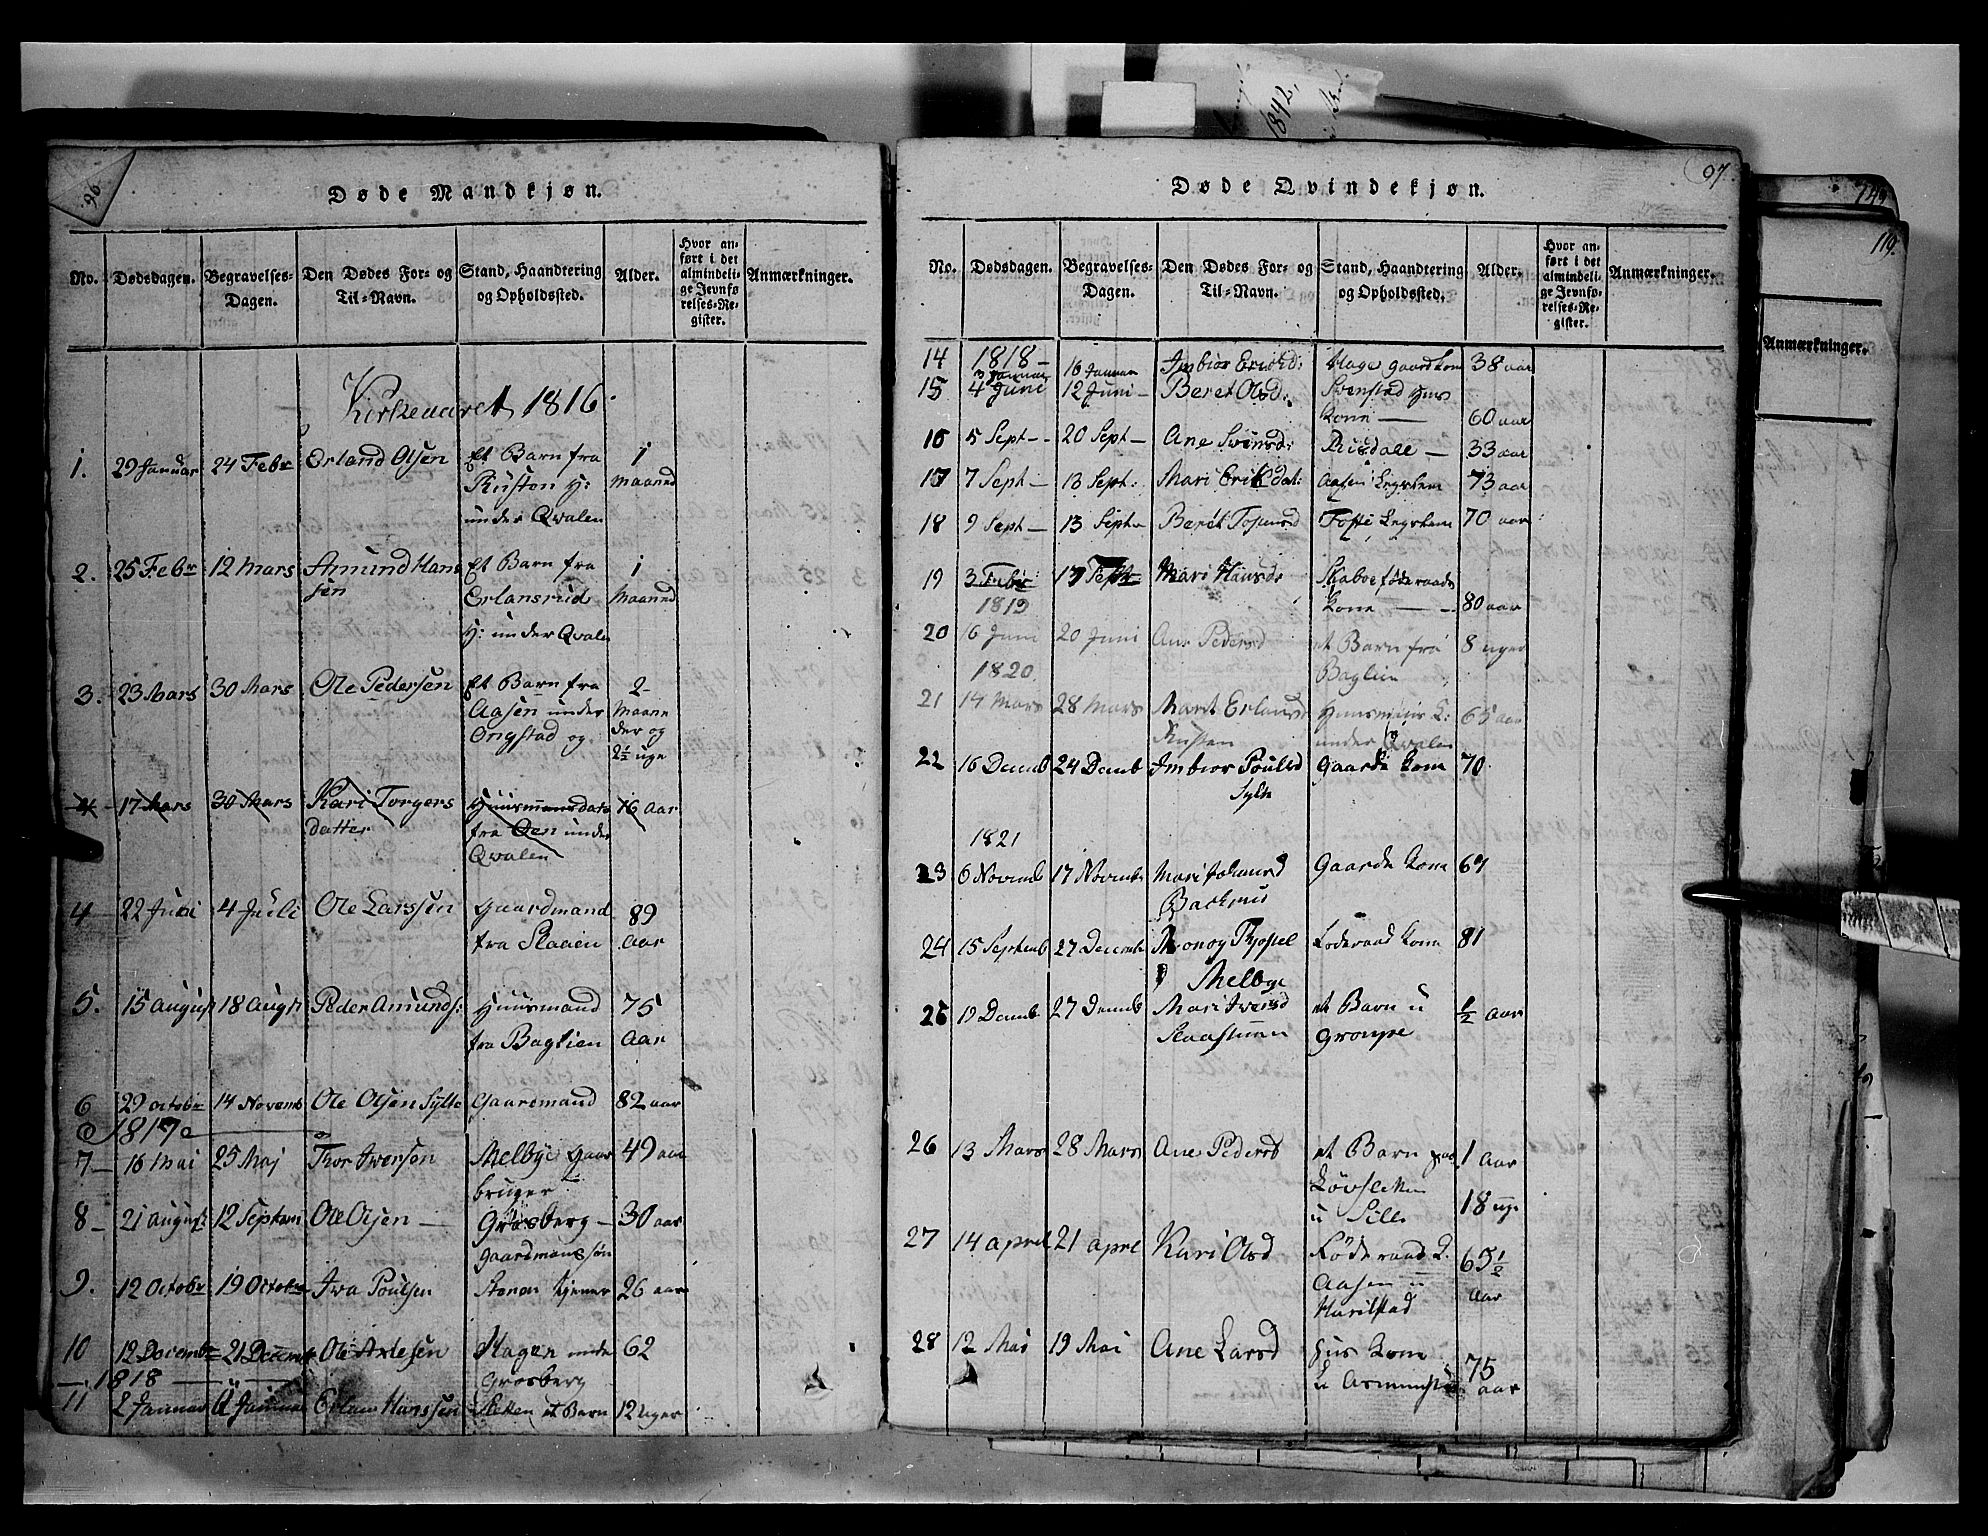 96
Døde Mandkjøn.
No. Dødsdagen. Begravelses-Dagen. Den Dødes For- og Til-Navn. Stand, Haandtering og Opholdssted. Alder. Hvor anført i det almindelige Jevnførelses-Register. Anmærkninger.
Kirkeaaret 1816
1. 29 Januar 24 Febr Erland Olsen Et Barn fra 1
Rusten H: maaned
under Qvalen
2. 25 Febr 12 Mars Amund Hans Et Barn fra 1
sen Erlansrud Maaned
H: under Qvalen
3. 23 Mars 30 Mars Ole Pedersen Et Barn fra 2
Aasen under Maane
Ongstad og der og
2½ uge
4 17 Mars 30 Mars Kari Torgers Huusmansdatr 16 Aar
datter fra Oen under
Qvalen
4 22 Juni 4 Juli Ole Larssen Gaardmand 89
fra Slaaen Aar
5. 15 August 18 Augst Peder Amunds: Huusmand 75
fra Baglien Aar
6 29 octobr 14 Novemb Ole Olsen Sylte Gaardmand 82 aar
1817
7 16 Mai 25 Maj Thor Iversen Melbye Gaar 49 aar
bruger
8 21 August 12 Septem Ole Olsen Grosberg 30 aar
gaardmans søn
9. 12 Octobr 19 Octobr Iva Poulsen tjener 26 aar
10 12 Decemb 21 Decemb Ole Hagen under 62
Grosberg
1818
11 2 Januar Januar Erlan Hanssen et Barn 12 uger
97
Døde Qvindekjøn.
No. Dødsdagen. Begravelses-Dagen. Den Dødes For- og Til-Navn. Stand, Haandtering og Opholdssted. Alder. Hvor anført i det almindelige Jevnførelses-Register. Anmærkninger.
1818
14 3 Januar 16 Januar Imbior Eriksd: Hage gaardkone 38 aar
15 4 Juni 12 Juni Beret Olsd: Svenstad Huus
Kone 60 aar
16 5 Sept 20 Sept Ane Svensd: Rusdall 33 aar
17 7 Sept 13 Sept: Mari Erikdat: Aasen Legslem 73 aar
18 9 Sept 13 Septr Berit Tosensd Tofte Legslem 70 aar
19 3 Febr 17 Sept Mari Hansdr Skaboe føderaads
1819 Kone 80 aar
20 16 Juni 20 Juni Ane Pedersd et Barn fra 8 uger
1820 Baglien
21 14 Mars 28 Mars Marit Erlandsd Huusmans K: 65 aar
Rusten under Qvalen
22 16 Decmb 24 Decmb Imbior Poulsd Gaards Kone 70
Sylte
1821
23 6 Novemb 17 Novemb Mari Johansd Gaards Kone 67
Backruus
24 15 Septemb 27 Decemb Føderaad Kone 81
Melbye
25 19 Decmb 27 Decmb Mari Iversd et Barn u ½ aar
Slaastuen Grompe
26 13 Mars 28 Mars Ane Pedersd et Barn paa 1 aar
Løvsletten
u Sille 18 ug.
27 14 April 21 April Kari Olsd Føderaad K. 65½
Aasen u aar
Harilstad
28 12 Mai 19 Mai Ane Larsd Hus Kone 75
aar
1842,
149
119.
Anmærkninger.